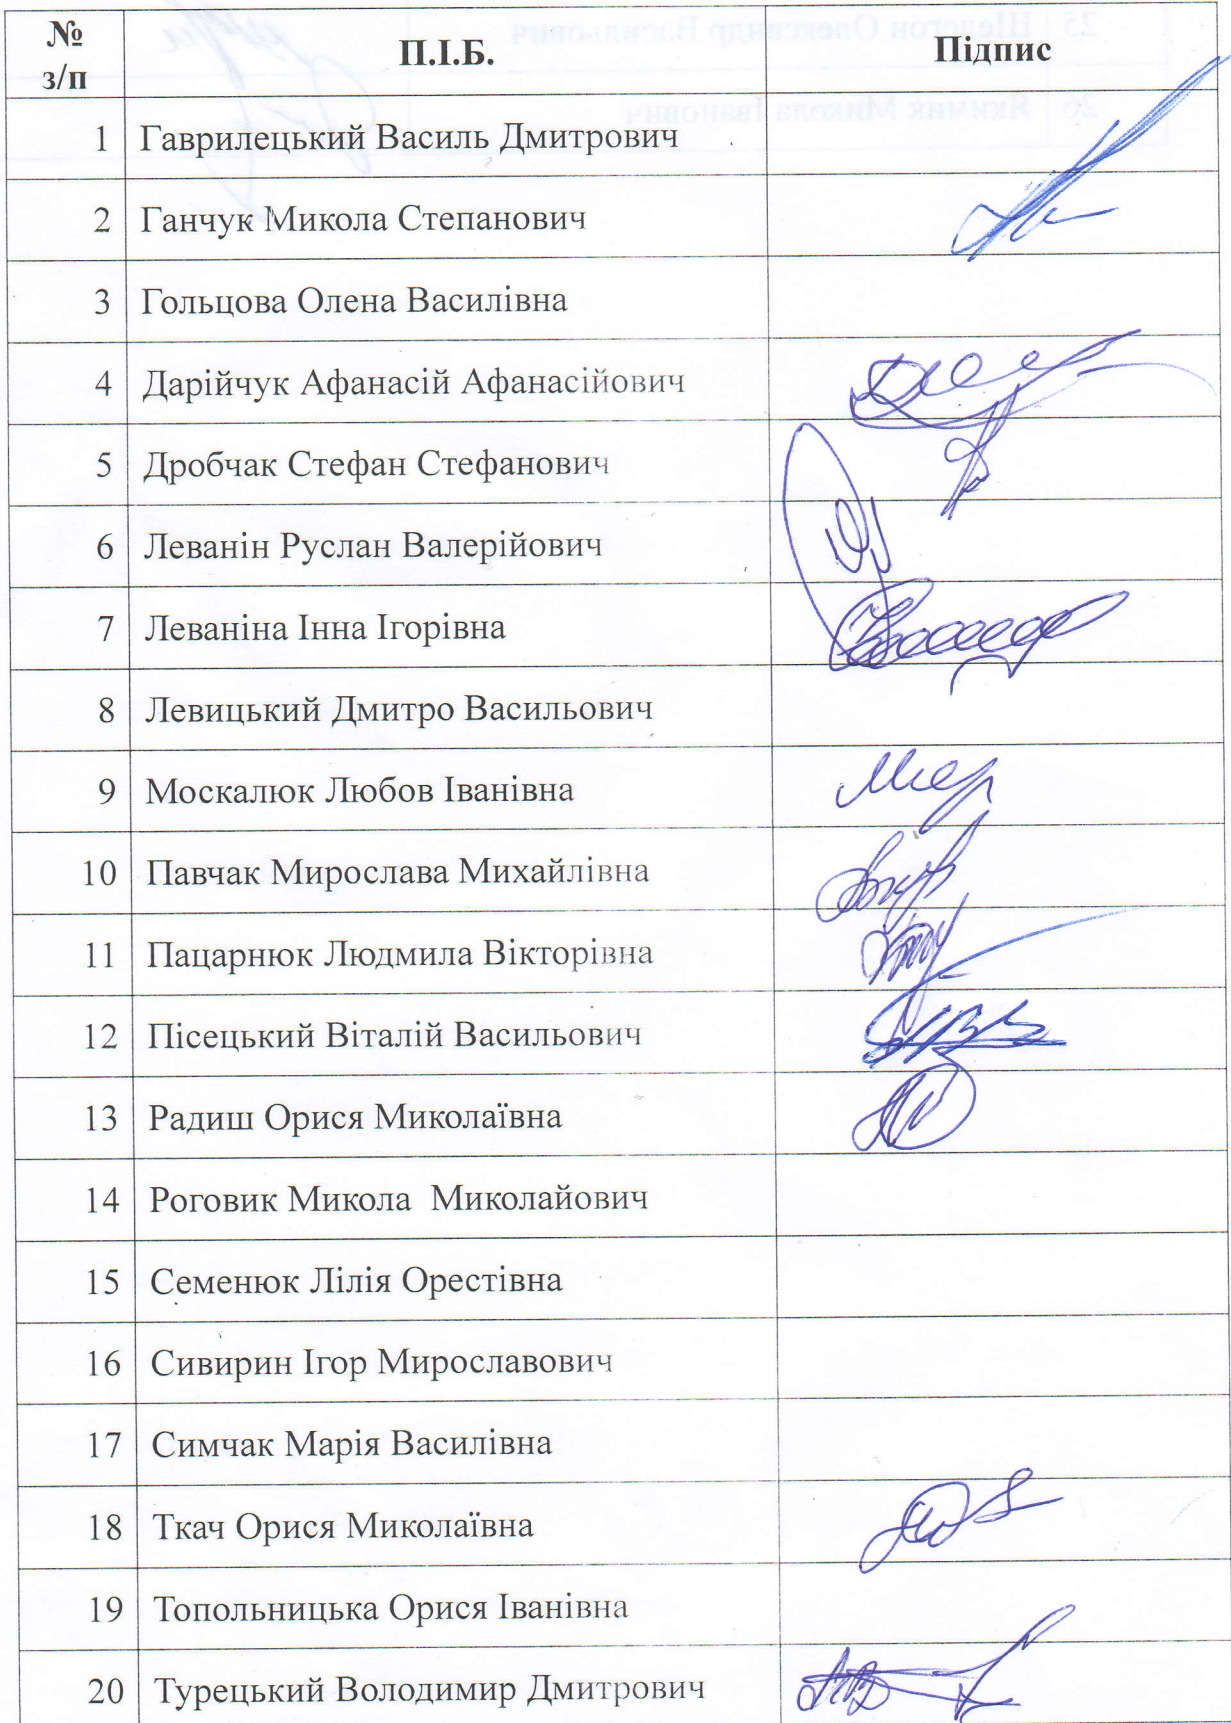 № з/п П.І.Б. Підпис
1 Гаврилецький Василь Дмитрович
2 Ганчук Микола Степанович
3 Гольцова Олена Василівна
4 Дарійчук Афанасій Афанасійович
5 Дробчак Стефан Стефанович
6 Леванін Руслан Валерійович
7 Леваніна Інна Ігорівна
8 Левицький Дмитро Васильович
9 Москалюк Любов Іванівна
10 Павчак Мирослава Михайлівна
11 Пацарнюк Людмила Вікторівна
12 Пісецький Віталій Васильович
13 Радиш Орися Миколаївна
14 Роговик Микола Миколайович
15 Семенюк Лілія Орестівна
16 Сивирин Ігор Мирославович
17 Симчак Марія Василівна
18 Ткач Орися Миколаївна
19 Топольницька Орися Іванівна
20 Турецький Володимир Дмитрович